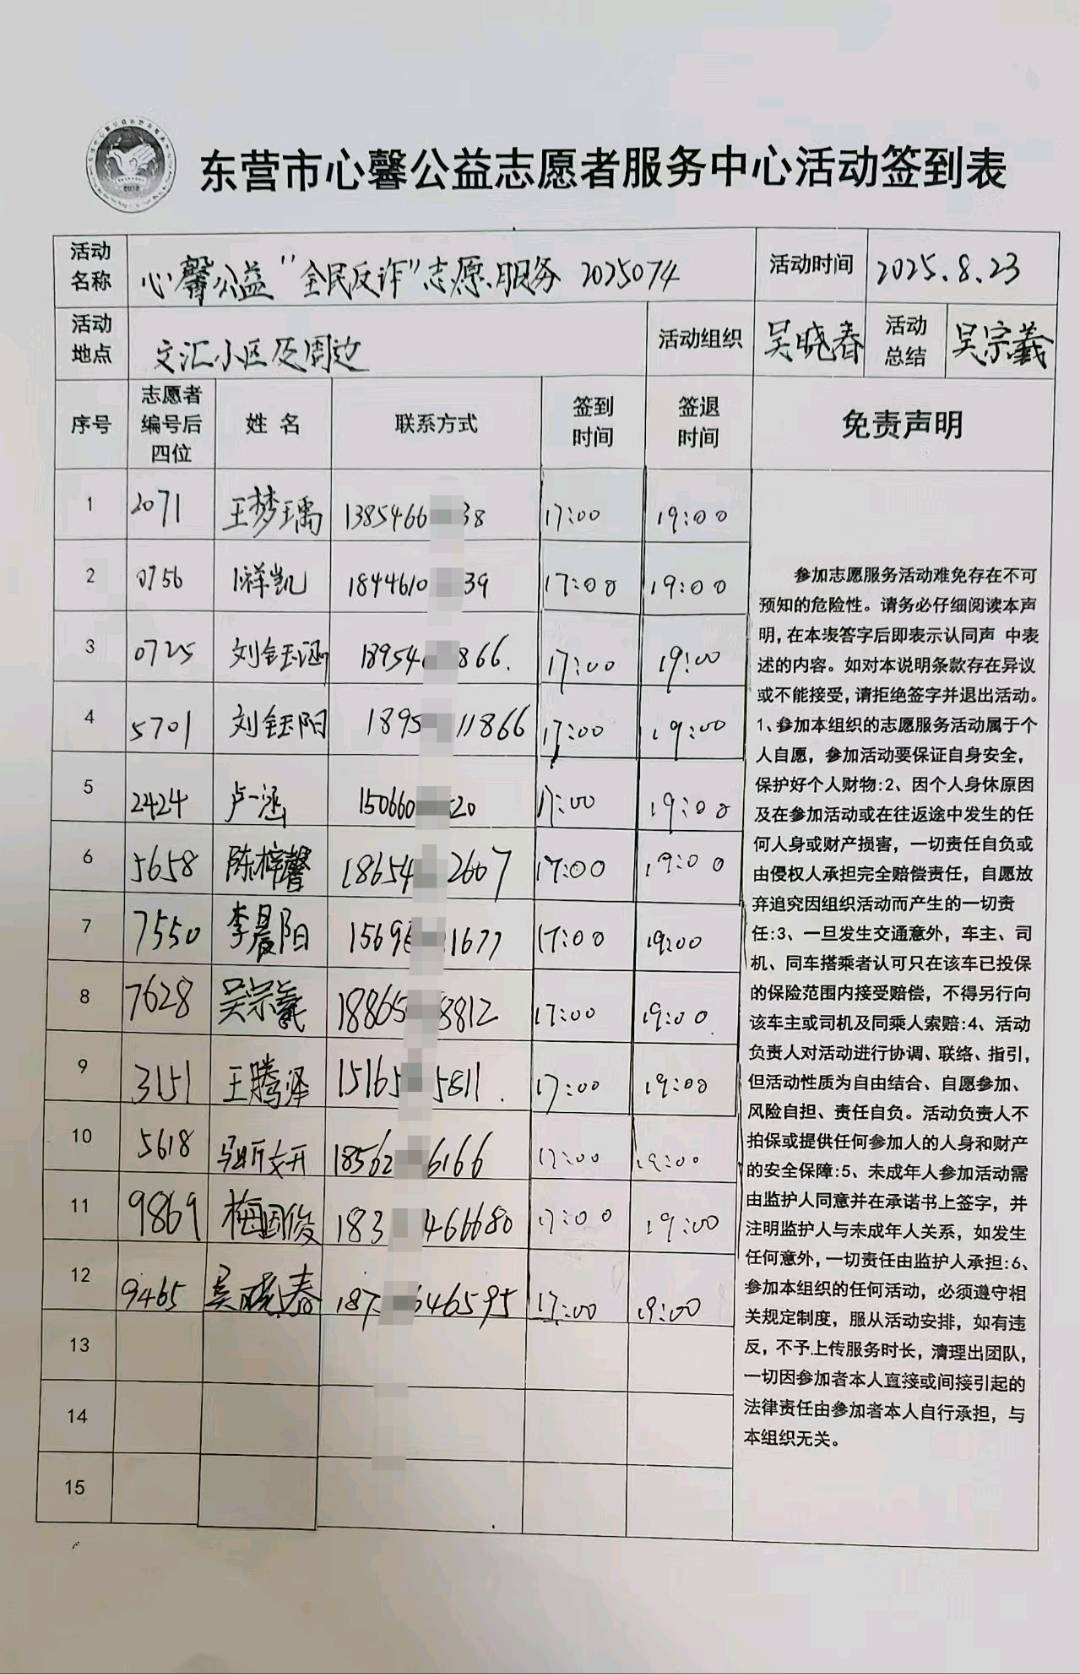 东营市心馨公益志愿者服务中心活动签到表
活动名称 心馨公益“全民反诈”志愿服务 2025074 活动时间 2025.8.23
活动地点 文汇小区及周边 活动组织 吴晓春 活动总结 吴宗羲
序号 志愿者编号后四位 姓名 联系方式 签到时间 签退时间 免责声明
1 2071 王梦瑀 1385466 38 17:00 19:00
2 0756 祥凯 1844610 39 17:00 19:00
3 0725 刘钰涵 18954 866. 17:00 19:00
4 5701 刘钰阳 1895 11866 17:00 19:00
5 2424 卢一涵 150660 20 17:00 19:00
6 5658 陈梓馨 18654 2607 17:00 19:00
7 7550 李晨阳 1569 1677 17:00 19:00
8 7628 吴宗羲 18865 8812 17:00 19:00
9 3151 王腾泽 15165 5811. 17:00 19:00
10 5618 马昕妍 18562 6166 17:00 19:00
11 9869 梅国俊 183 466680 17:00 19:00
12 9465 吴晓春 187 646595 17:00 19:00
13
14
15
参加志愿服务活动难免存在不可
预知的危险性。请务必仔细阅读本声
明,在本表签字后即表示认同声 中表
述的内容。如对本说明条款存在异议
或不能接受,请拒绝签字并退出活动。
1、参加本组织的志愿服务活动属于个
人自愿，参加活动要保证自身安全，
保护好个人财物:2、因个人身休原因
及在参加活动或在往返途中发生的任
何人身或财产损害，一切责任自负或
由侵权人承担完全赔偿责任，自愿放
弃追究因组织活动而产生的一切责
任:3、一旦发生交通意外，车主、司
机、同车搭乘者认可只在该车已投保
的保险范围内接受赔偿，不得另行向
该车主或司机及同乘人索赔:4、活动
负责人对活动进行协调、联络、指引，
但活动性质为自由结合、自愿参加、
风险自担、责任自负。活动负责人不
拍保或提供任何参加人的人身和财产
的安全保障:5、未成年人参加活动需
由监护人同意并在承诺书上签字，并
注明监护人与未成年人关系，如发生
任何意外,一切责任由监护人承担:6、
参加本组织的任何活动，必须遵守相
关规定制度，服从活动安排，如有违
反，不予上传服务时长，清理出团队，
一切因参加者本人直接或间接引起的
法律责任由参加者本人自行承担，与
本组织无关。